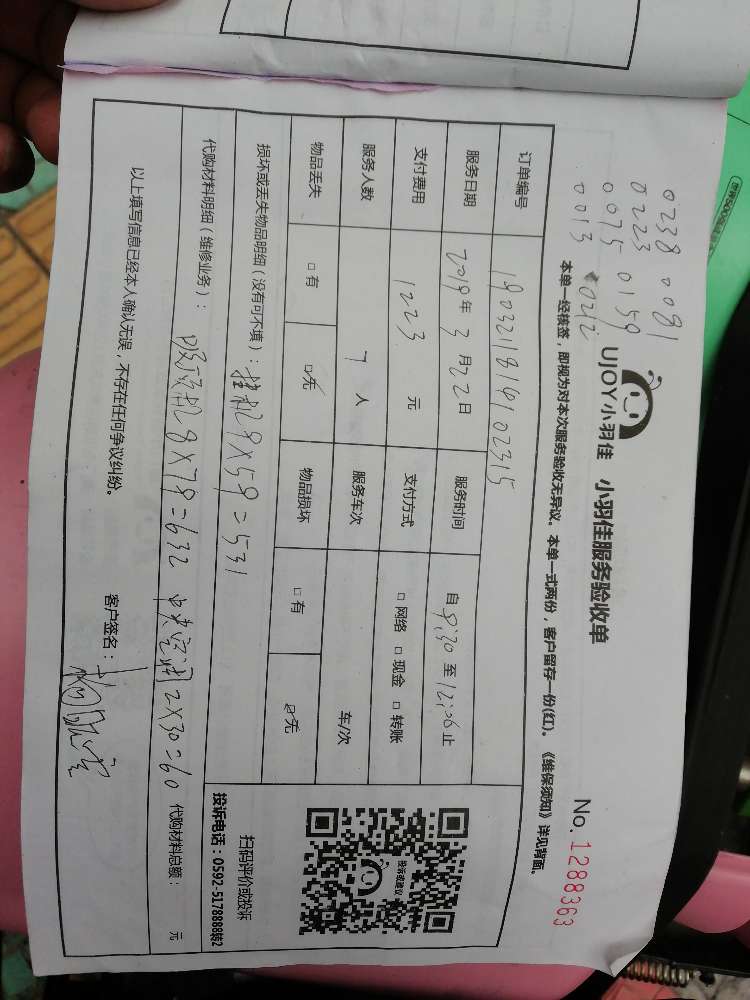 0238 0081
0223
0075 0159
0013 0212
UJOY小羽佳 小羽佳服务验收单
No. 1288363
本单一经核签，即视为对本次服务验收无异议。本单一式两份，客户留存一份(红)。《维保须知》详见背面。
订单编号 1903211819102315
服务日期 2019年3月22日 服务时间 自 9:30 至 12:06 止
支付费用 1223 元 支付方式 □ 网络 □ 现金 □ 转账
服务人数 7 人 服务车次 车/次
物品丢失 □ 有 □ 无 物品损坏 □ 有 □ 无
损坏或丢失物品明细（没有可不填）：挂机9X59=531
代购材料明细（维修业务）：吸顶机8X79=632 中央空调2X30=60 代购材料总额： 元
以上填写信息已经本人确认无误，不存在任何争议纠纷。
客户签名：
投诉或建议
扫码评价或投诉
投诉电话：0592-5178888转2